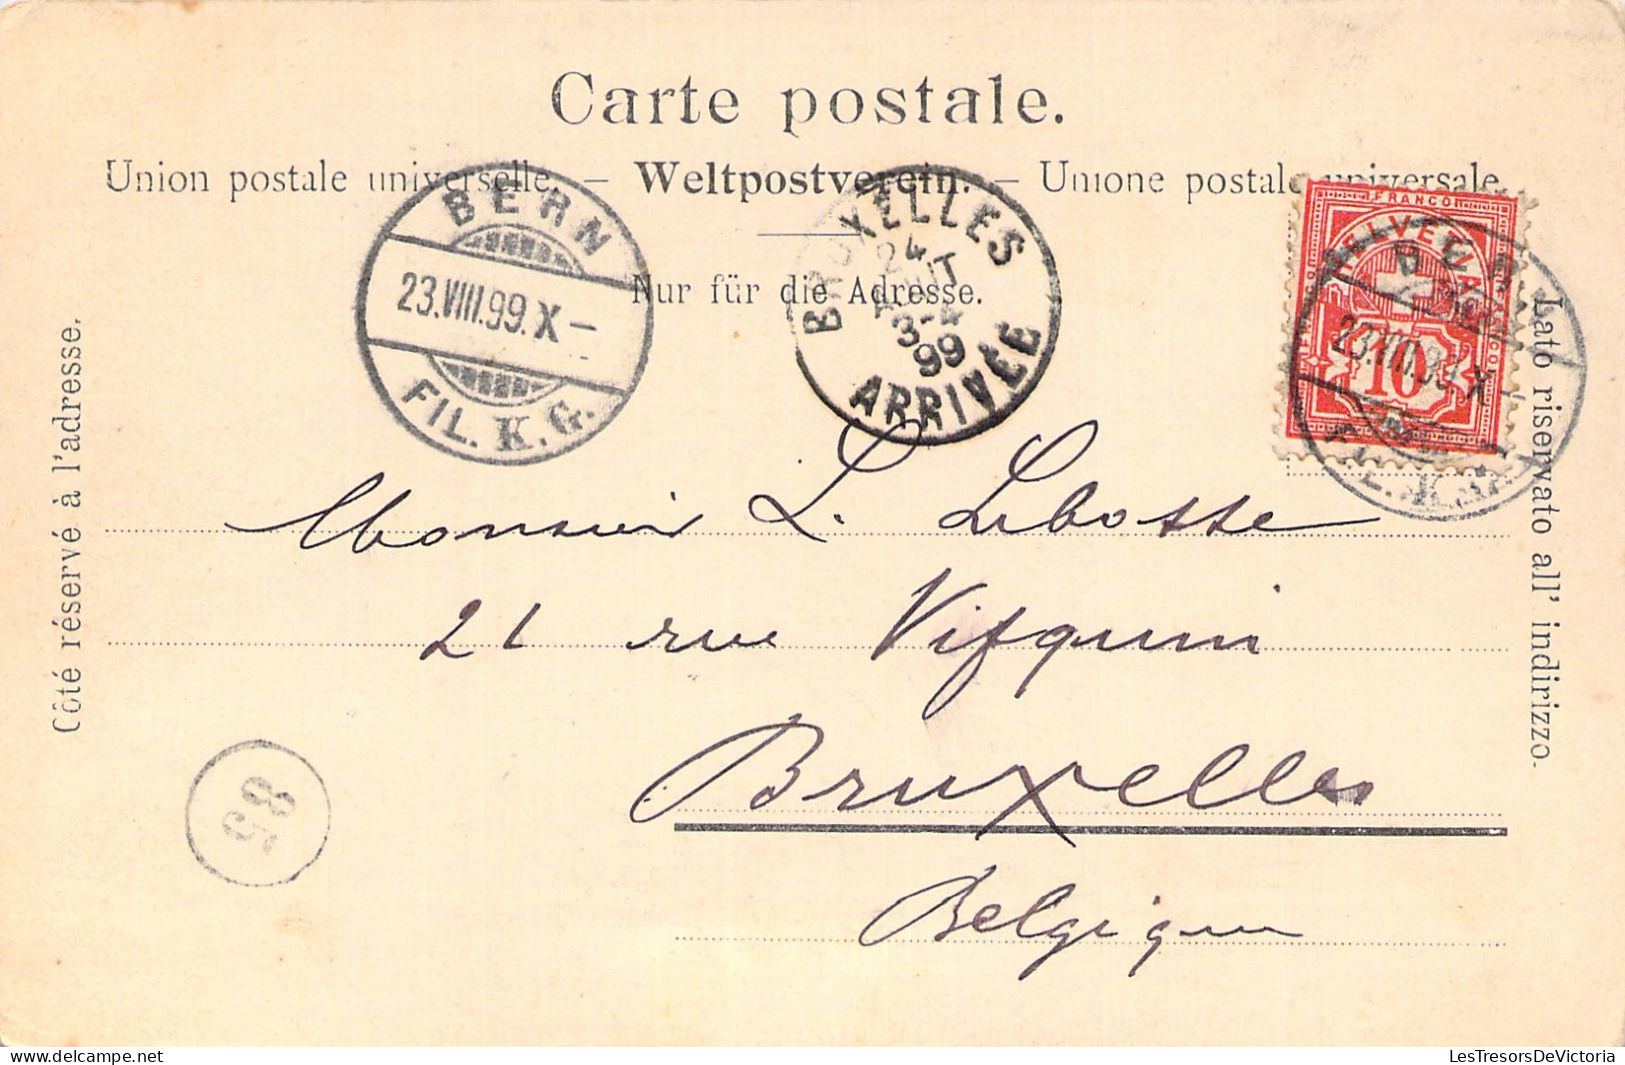 Carte postale.
Union postale universelle. – Weltpostverein. – Unione postale universale.
Nur für die Adresse.
Côté réservé à l'adresse.
Lato riservato all' indirizzo.
BERN
23.VIII.99.X–
FIL. K. G.
BRUXELLES
24
AOUT
3-4
99
ARRIVÉE
FRANCO
HELVETIA
10
BERN
23.VIII.99.X–
FIL. K. G.
Monsieur L. Lebosse
21 rue Vifquin
Bruxelles
Belgique
85
LesTresorsDeVictoria
delcampe.net